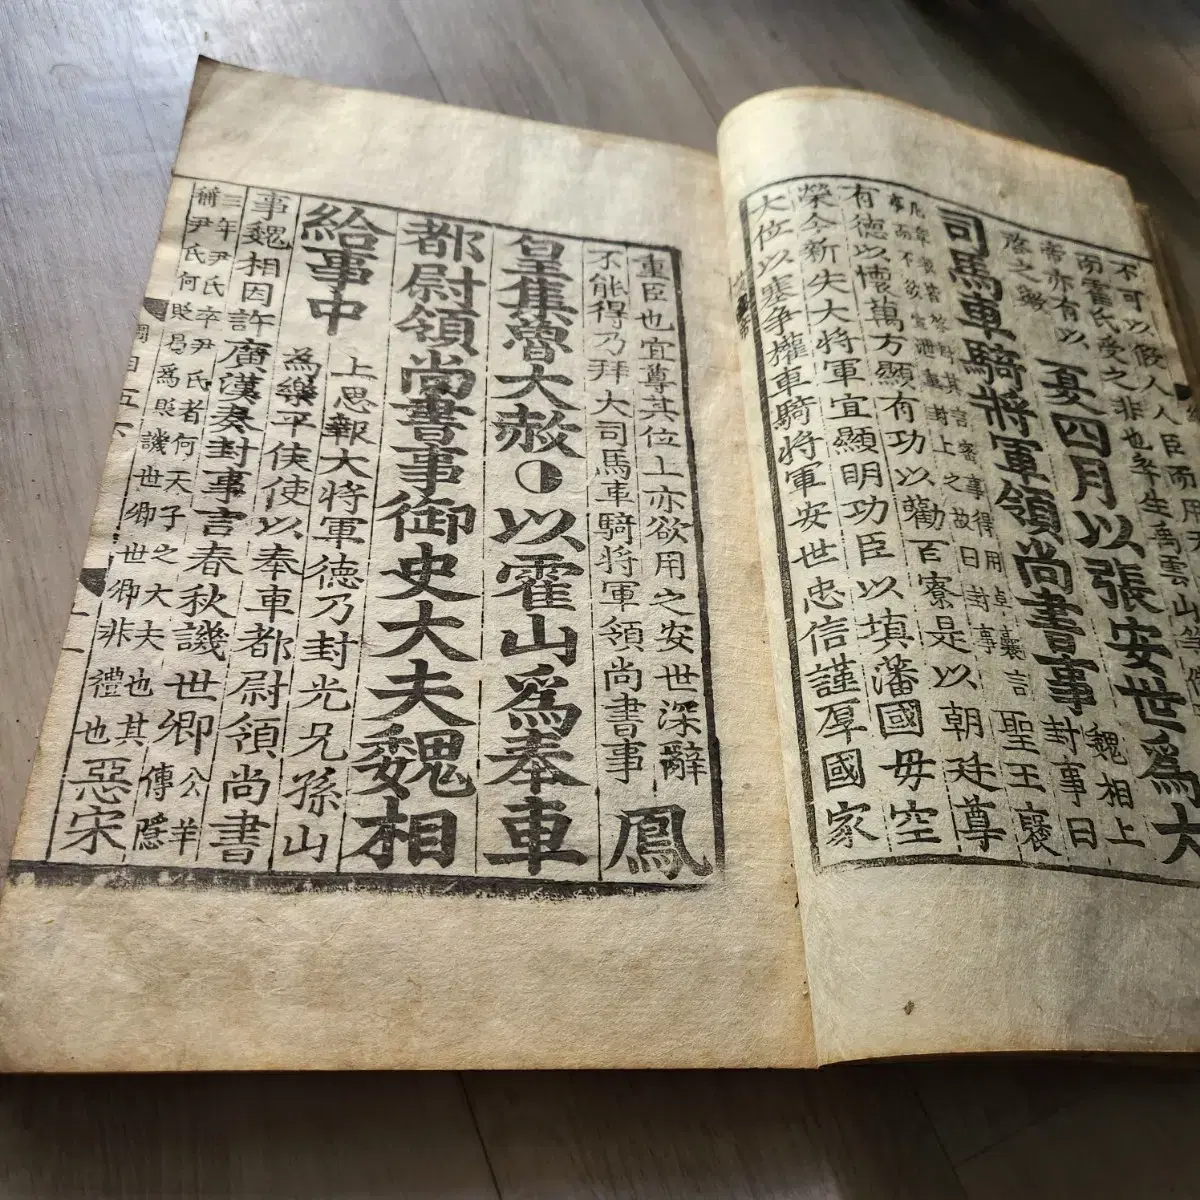 不可以假人人臣而用天
而霍氏受之非也
帝亦有以
啓之歟
夏四月以張安世爲大
司馬車騎將軍領尚書事
魏相上
封事曰
聖王襃
有德以懷萬方顯有功以勸百寮是以朝廷尊
榮今新失大將軍宜顯明功臣以填藩國毋空
大位以塞争權車騎將軍安世忠信謹厚國家
重臣也宜尊其位上亦欲用之安世深辭
不能得乃拜大司馬車騎將軍領尚書事
鳳
皇集魯大赦◐以霍山爲奉車
都尉領尚書事御史大夫魏相
給事中
上思報大將軍德乃封光兄孫山
爲樂平侯使以奉車都尉領尚書
事魏相因許廣漢奏封事言春秋譏世卿
公羊
傳隱
三年尹氏卒尹氏者何天子之大夫也其
稱尹氏何貶曷爲貶譏世卿世卿非禮也
惡宋
綱目五
十一